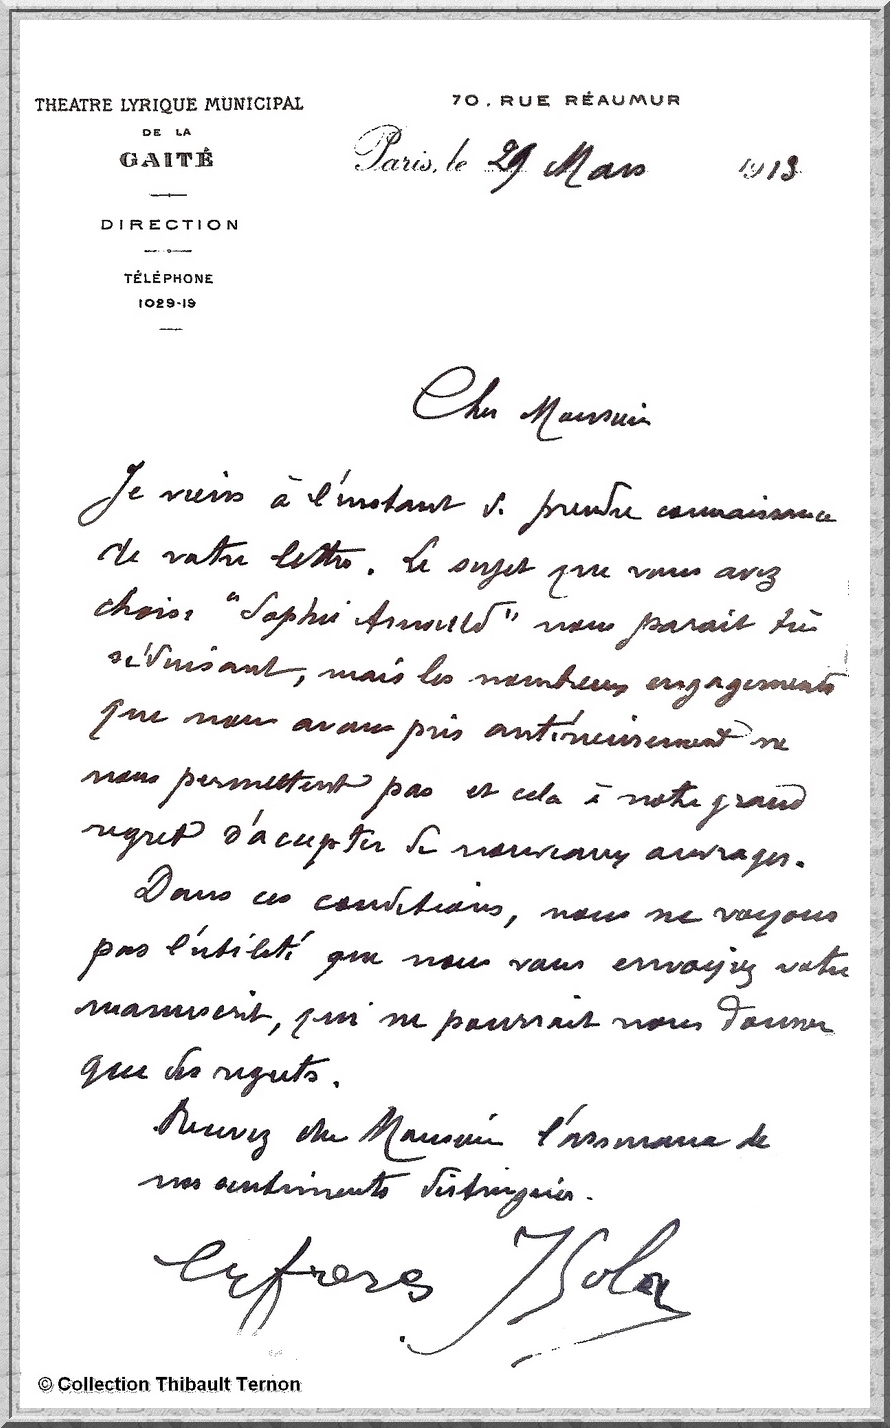 THEATRE LYRIQUE MUNICIPAL
DE LA
GAITÉ
DIRECTION
TÉLÉPHONE
1029-19
70. RUE RÉAUMUR
Paris, le 29 Mars 1913
Cher Monsieur
Je viens à l'instant de prendre connaissance
de votre lettre. Le sujet que vous avez
choisi "Sophie Arnould" nous parait très
séduisant, mais les nombreux engagements
que nous avons pris antérieurement ne
nous permettent pas et cela à notre grand
regret d'accepter de nouveaux ouvrages.
Dans ces conditions, nous ne voyons
pas l'utilité que nous vous envoyiez votre
manuscrit, qui ne pourrait nous donner
que des regrets.
Recevez cher Monsieur l'assurance de
nos sentiments distingués.
les frères Isola
© Collection Thibault Ternon